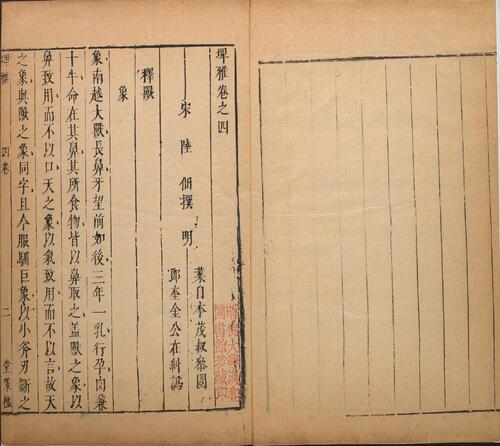 埤雅卷之四
宋 陸 佃撰 明
葉自本茂叔叅閱
郎奎金公在糾譌
釋獸
象
象南越大獸長鼻牙望前如後三年一乳行孕肉兼
十牛命在其鼻其所食物皆以鼻取之蓋獸之象以
鼻致用而不以口天之象以氣致用而不以言故天
之象與獸之象同字且今服馴巨象以小斧刃斷之
埤雅 四卷 二 堂策檻